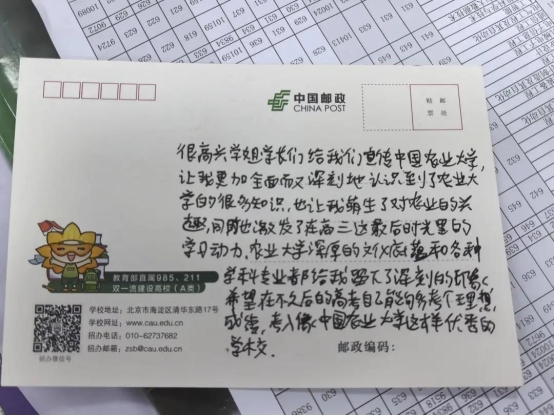 中国邮政
CHINA POST
贴邮
票处
很高兴学姐学长们给我们宣传中国农业大学,
让我更加全面而又深刻地认识到了农业大
学的很多知识,也让我萌生了对农业的兴
趣,同时也激发了在高三这最后时光里的
学习动力.农业大学深厚的文化底蕴和各种
学科专业都给我留下了深刻的印象.
希望在不久后的高考自己能够考下理想
成绩,考入像中国农业大学这样优秀的
学校.
教育部直属985、211
双一流建设高校(A类)
学校地址:北京市海淀区清华东路17号
学校网址:www.cau.edu.cn
招办电话:010-62737682
招办邮箱:zsb@cau.edu.cn
招办微信号
邮政编码: